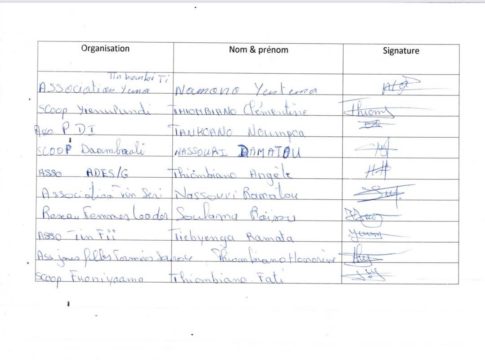 Organisation Nom & prénom Signature
Tin bambi Ti
Association Yenu Namono Yentema
SCOOP Yienupundi THIOMBIANO Clémentine Thiom
Asso PDI TANKOANO Noumpoa
SCOOP Daambaali NASSOURI DAMATOU
ASSO ADES/G Thiombiano Angèle
Association Tin Seri Nassouri Ramatou
Reseau Femmes Leader Soulama Raissa
Asso Tin Fii Tiebyenga Ramata
Ass jeunes filles Thiombiano Honorine
SCOOP Fuoniyaama Thiombiano Fati